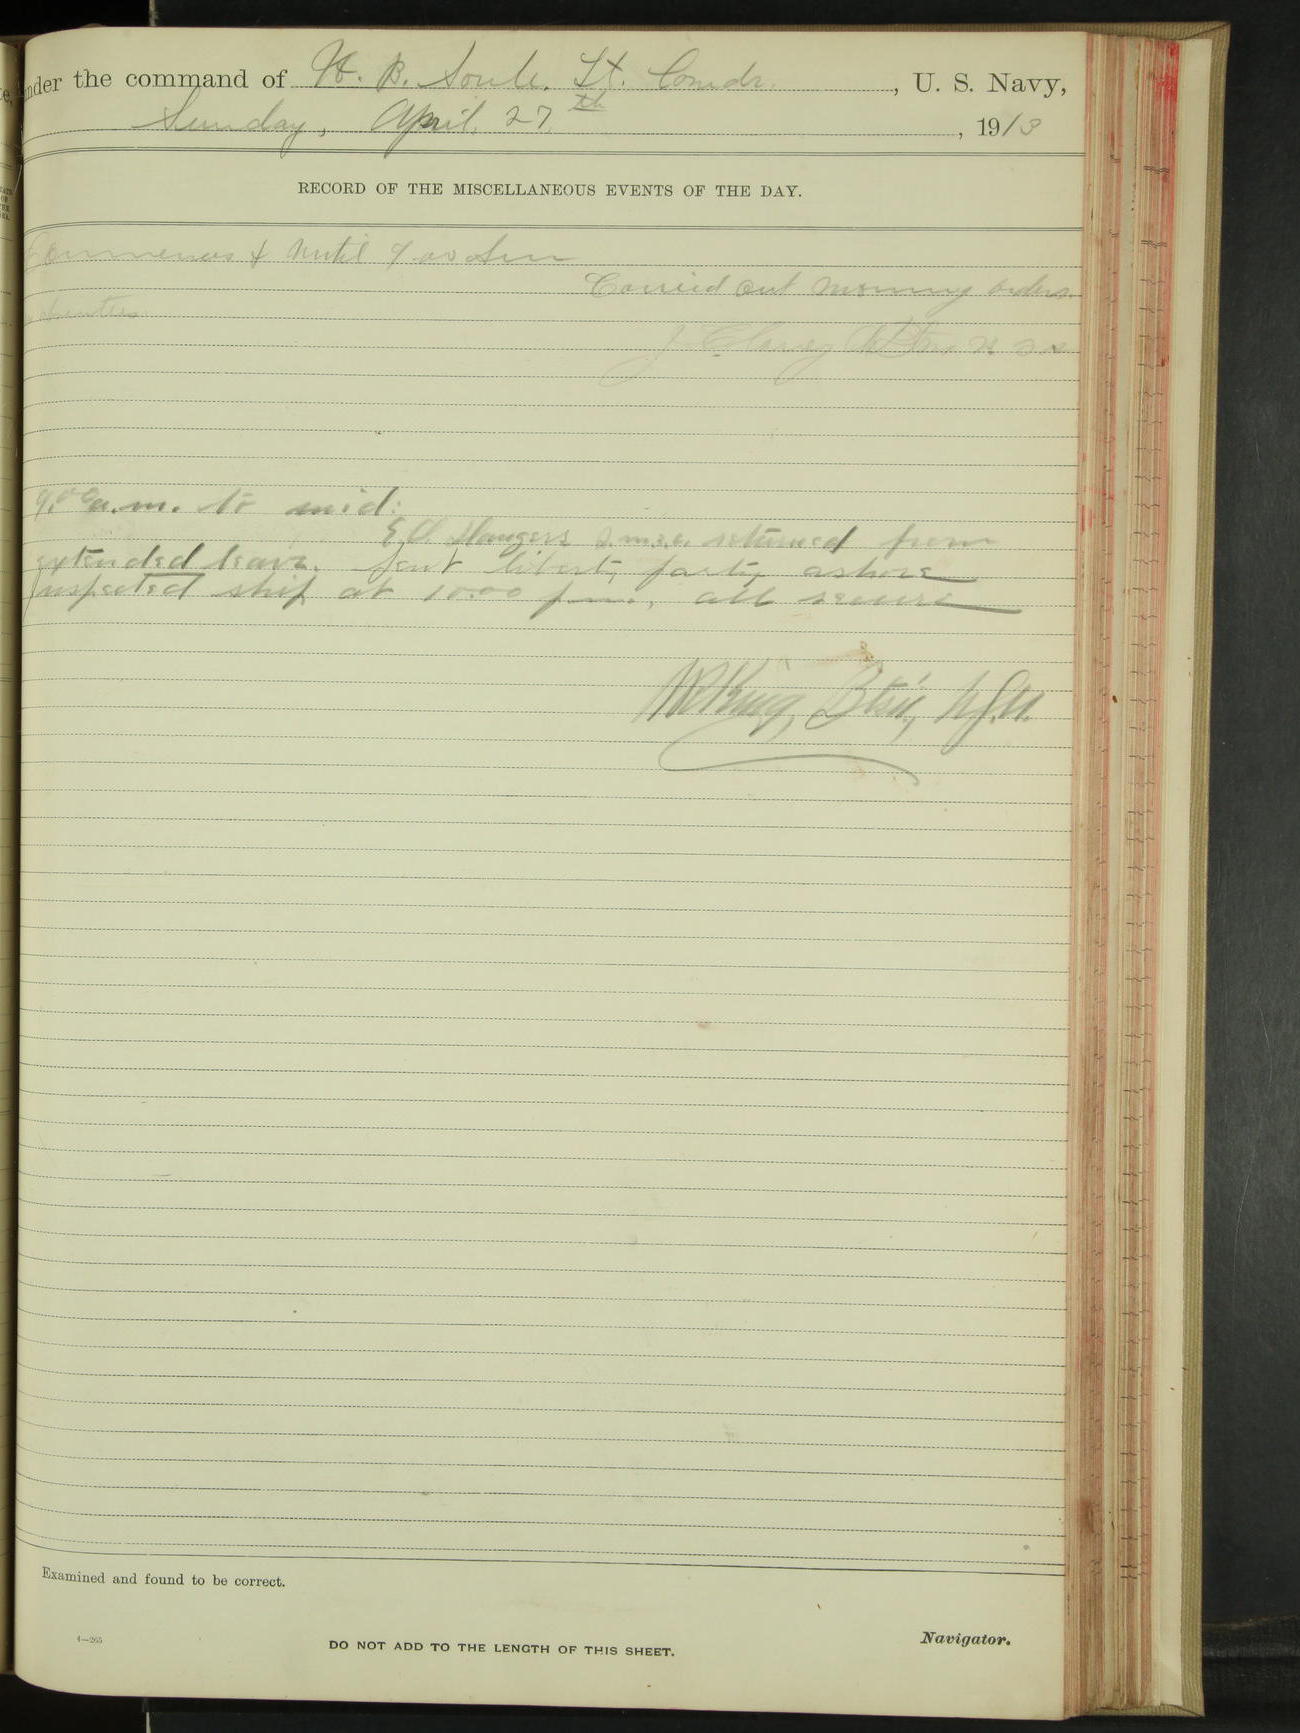 under the command of H. B. Soule. Lt. Comdr. , U. S. Navy,
Sunday, April. 27th , 1913
RECORD OF THE MISCELLANEOUS EVENTS OF THE DAY.
Commences & Until 9 00 Am
Carried out morning orders
& duties.
9.00 a.m. to mid:
returned from
extended leave. Sent liberty party ashore
Inspected ship at 10.00 p.m., all secure
King, Btsn, U.S.N.
Examined and found to be correct.
4—265
DO NOT ADD TO THE LENGTH OF THIS SHEET.
Navigator.